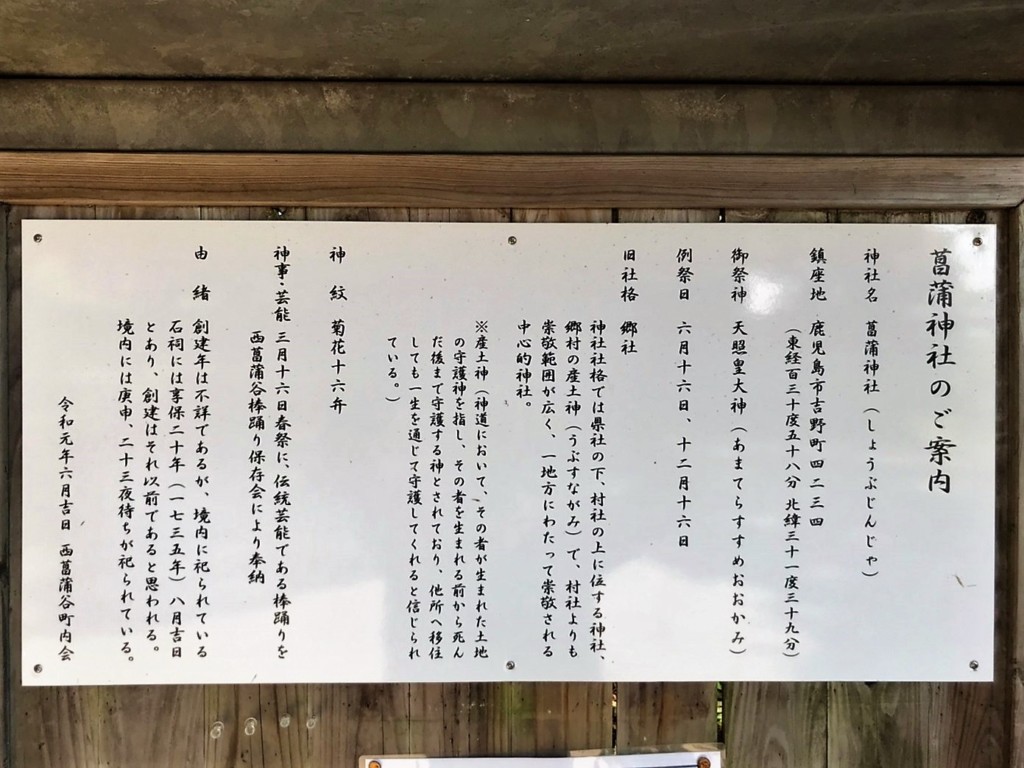 菖蒲神社のご案内
神社名　菖蒲神社（しょうぶじんじゃ）
鎮座地　鹿児島市吉野町四二三四
（東経百三十度五十八分 北緯三十一度三十九分）
御祭神　天照皇大神（あまてらすすめおおかみ）
例祭日　六月十六日、十二月十六日
旧社格　郷社
神社社格では県社の下、村社の上に位する神社、
郷村の産土神（うぶすながみ）で、村社よりも
崇敬範囲が広く、一地方にわたって崇敬される
中心的神社。
※産土神（神道において、その者が生まれた土地
の守護神を指し、その者を生まれる前から死ん
だ後まで守護する神とされており、他所へ移住
しても一生を通じて守護してくれると信じられ
ている。）
神　紋　菊花十六弁
神事・芸能　三月十六日春祭に、伝統芸能である棒踊りを
西菖蒲谷棒踊り保存会により奉納
由　緒　創建年は不詳であるが、境内に祀られている
石祠には享保二十年（一七三五年）八月吉日
とあり、創建はそれ以前であると思われる。
境内には庚申、二十三夜待ちが祀られている。
令和元年六月吉日　西菖蒲谷町内会